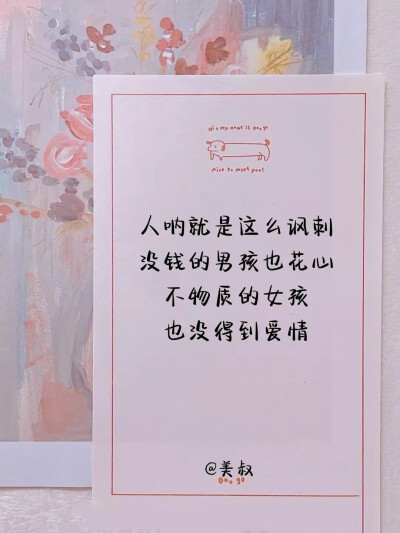 nice to meet you!
人呐就是这么讽刺
没钱的男孩也花心
不物质的女孩
也没得到爱情
@美叔